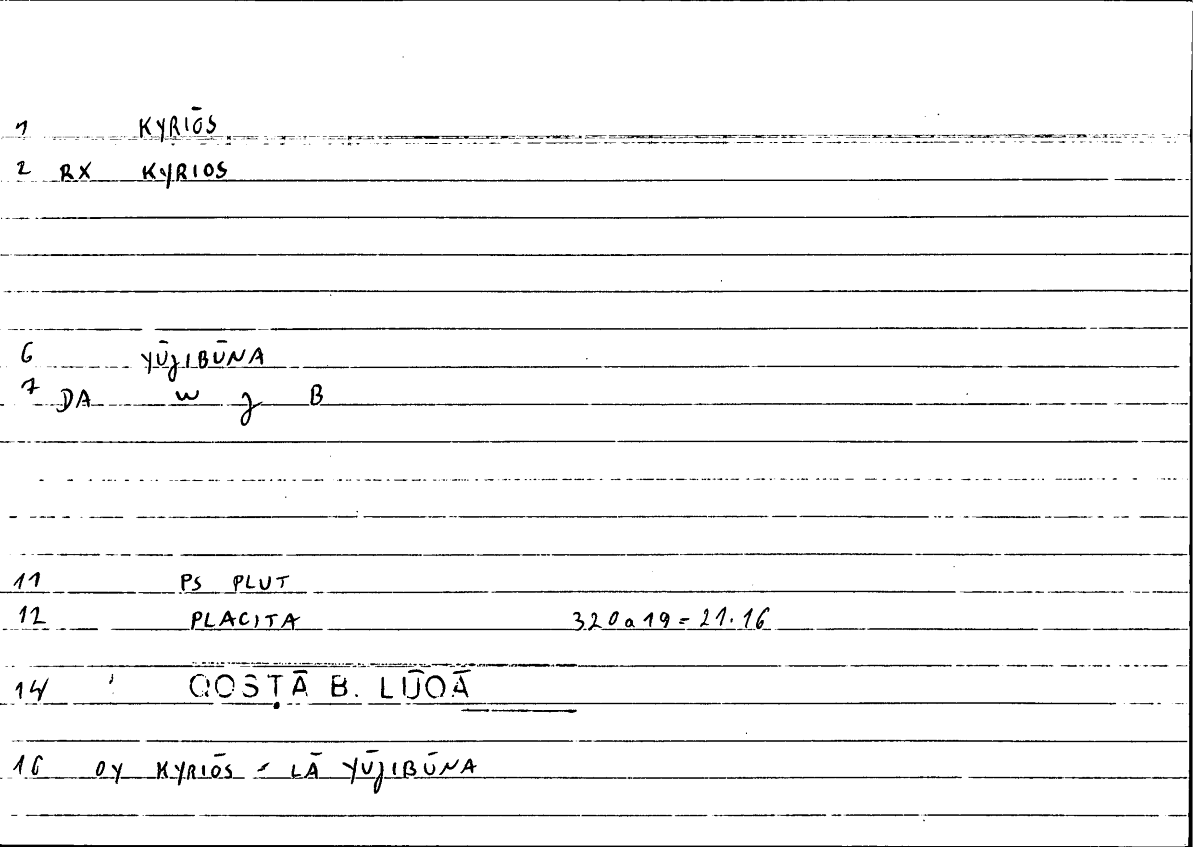 1 KYRIŌS
2 RX KYRIOS
6 YŪJIBŪNA
7 DA W J B
11 PS PLUT
12 PLACITA 320a19 = 21.16
14 QOSṬĀ B. LŪQĀ
16 OY KYRIŌS = LĀ YŪJIBŪNA